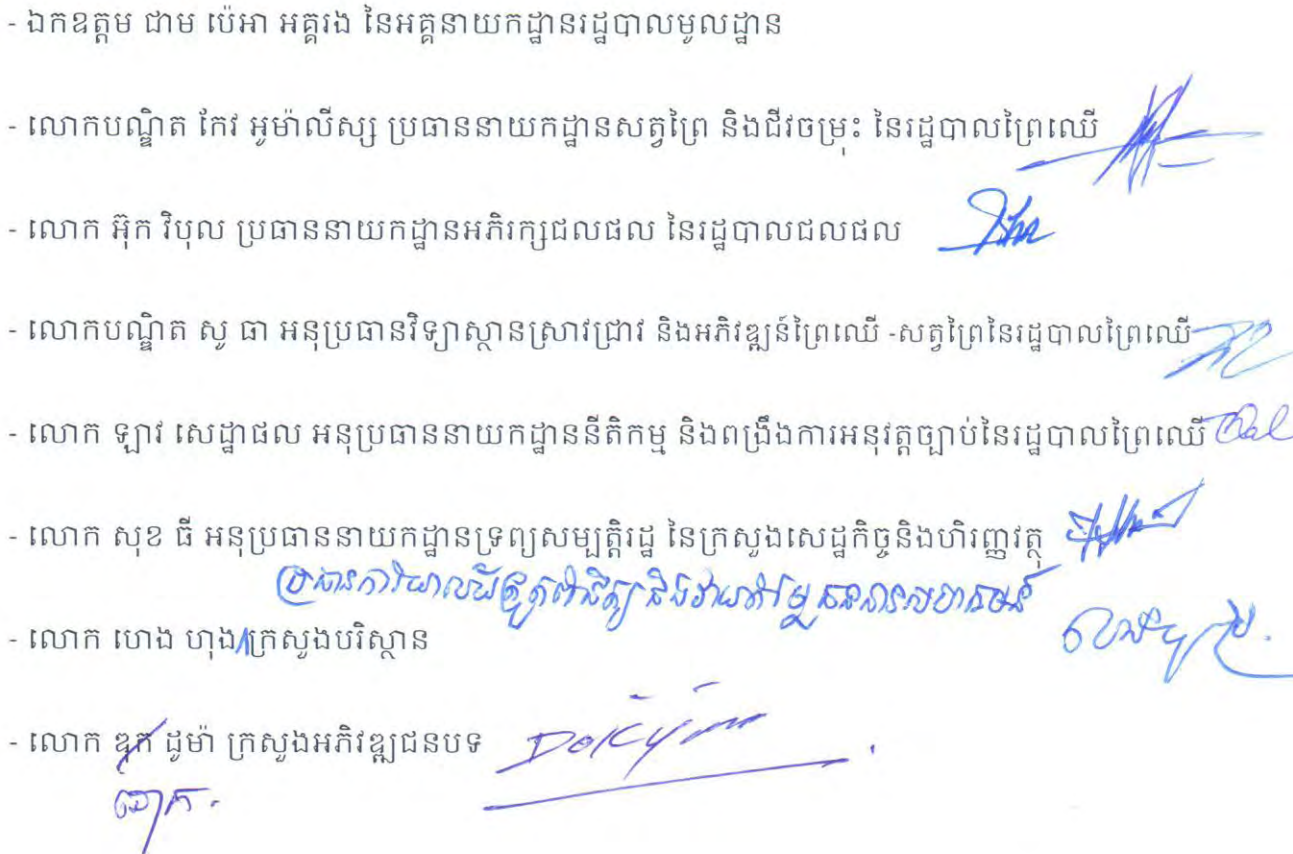 - ឯកឧត្តម ជាម ប៉េអា អគ្គរង នៃអគ្គនាយកដ្ឋានរដ្ឋបាលមូលដ្ឋាន
- លោកបណ្ឌិត កែវ អូម៉ាលីស្ស ប្រធាននាយកដ្ឋានសត្វព្រៃ និងជីវចម្រុះ នៃរដ្ឋបាលព្រៃឈើ
- លោក អ៊ុក វិបុល ប្រធាននាយកដ្ឋានអភិរក្សជលផល នៃរដ្ឋបាលជលផល
- លោកបណ្ឌិត សូ ធា អនុប្រធានវិទ្យាស្ថានស្រាវជ្រាវ និងអភិវឌ្ឍន៍ព្រៃឈើ -សត្វព្រៃនៃរដ្ឋបាលព្រៃឈើ
- លោក ឡាវ សេដ្ឋាផល អនុប្រធាននាយកដ្ឋាននីតិកម្ម និងពង្រឹងការអនុវត្តច្បាប់នៃរដ្ឋបាលព្រៃឈើ
- លោក សុខ ធី អនុប្រធាននាយកដ្ឋានទ្រព្យសម្បត្តិរដ្ឋ នៃក្រសួងសេដ្ឋកិច្ចនិងហិរញ្ញវត្ថុ
ប្រធានការិយាល័យត្រួតពិនិត្យ និងវាយតម្លៃ សហគមន៍
- លោក ហេង ហុង ក្រសួងបរិស្ថាន
- លោក ឌុក ដូម៉ា ក្រសួងអភិវឌ្ឍជនបទ
ឆោក.